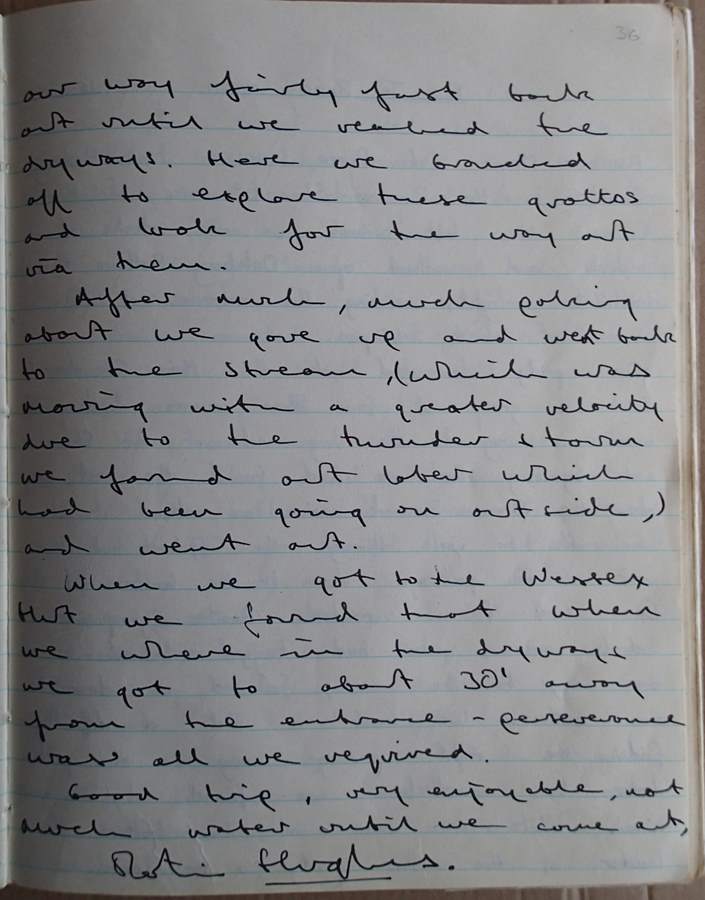 36
our way fairly fast back
out until we reached the
dryways. Here we branched
off to explore these grottos
and look for the way out
via them.
After much, much poking
about we gave up and went back
to the stream, (which was
moving with a greater velocity
due to the thunder storm
we found out later which
had been going on outside,)
and went out.
When we got to the Wessex
Hut we found that when
we where in the dryways
we got to about 30' away
from the entrance - perseverence
was all we required.
Good trip, very enjoyable, not
much water until we came out,
Hughes.